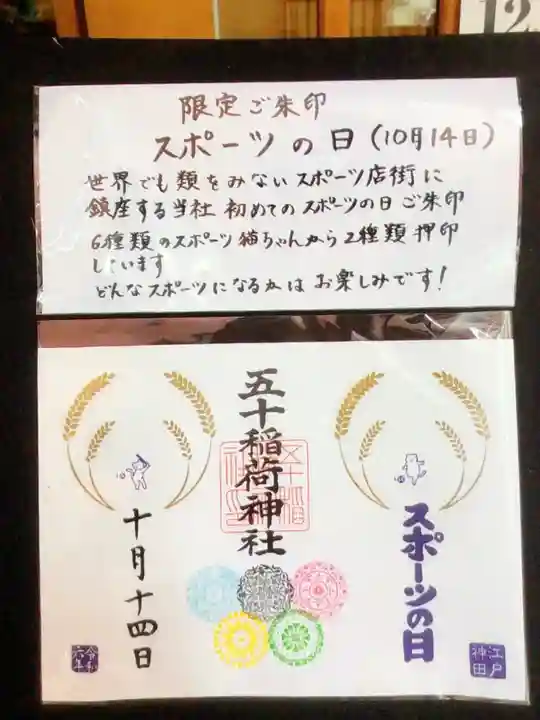 12
限定ご朱印
スポーツの日(10月14日)
世界でも類をみないスポーツ店街に
鎮座する当社 初めてのスポーツの日ご朱印
6種類のスポーツ猫ちゃんから2種類押印
しています
どんなスポーツになるかはお楽しみです!
スポーツの日
江戸
神田
五十稲荷神社
十月十四日
令和
六年